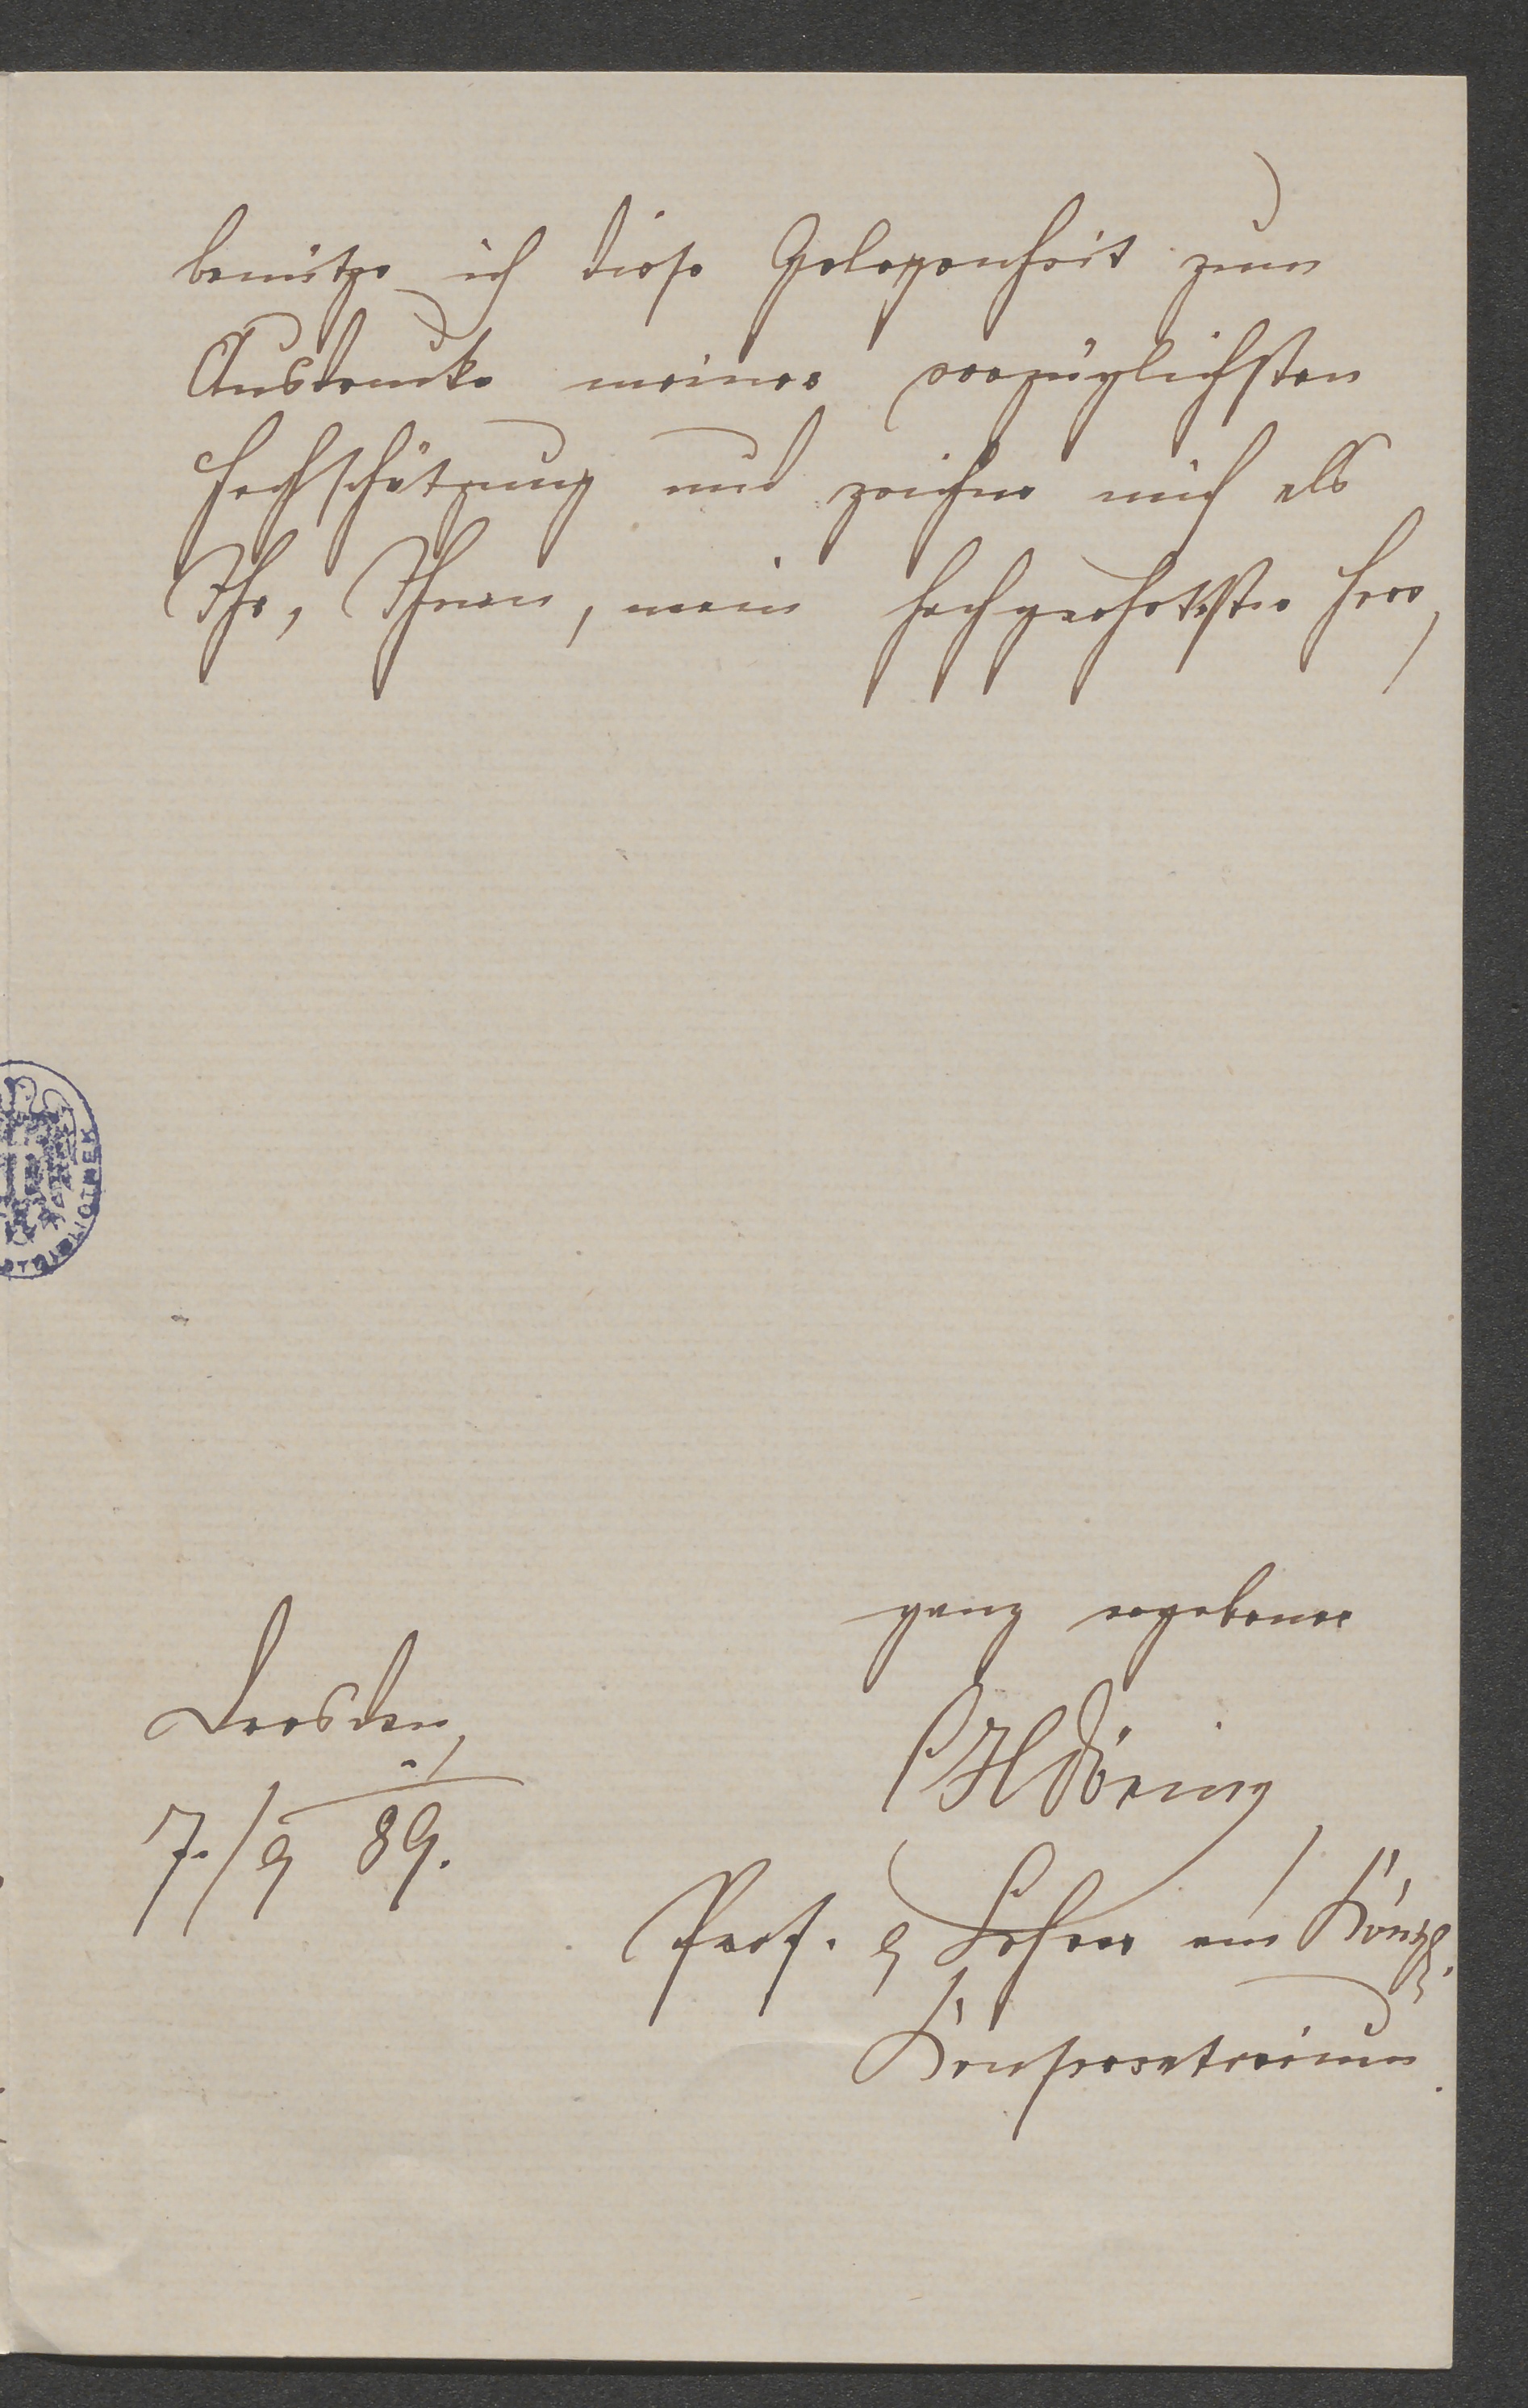 benütze ich diese Gelegenheit zum
Ausdrucke meiner vorzüglichsten
Hochschätzung und zeichne mich als
Ihr, Ihnen, mein hochgeehrtester Herr,
ganz ergebener
Dresden,
CHDöring
7./9 89.
Prof. & Lehrer am Königl.
Konservatorium.